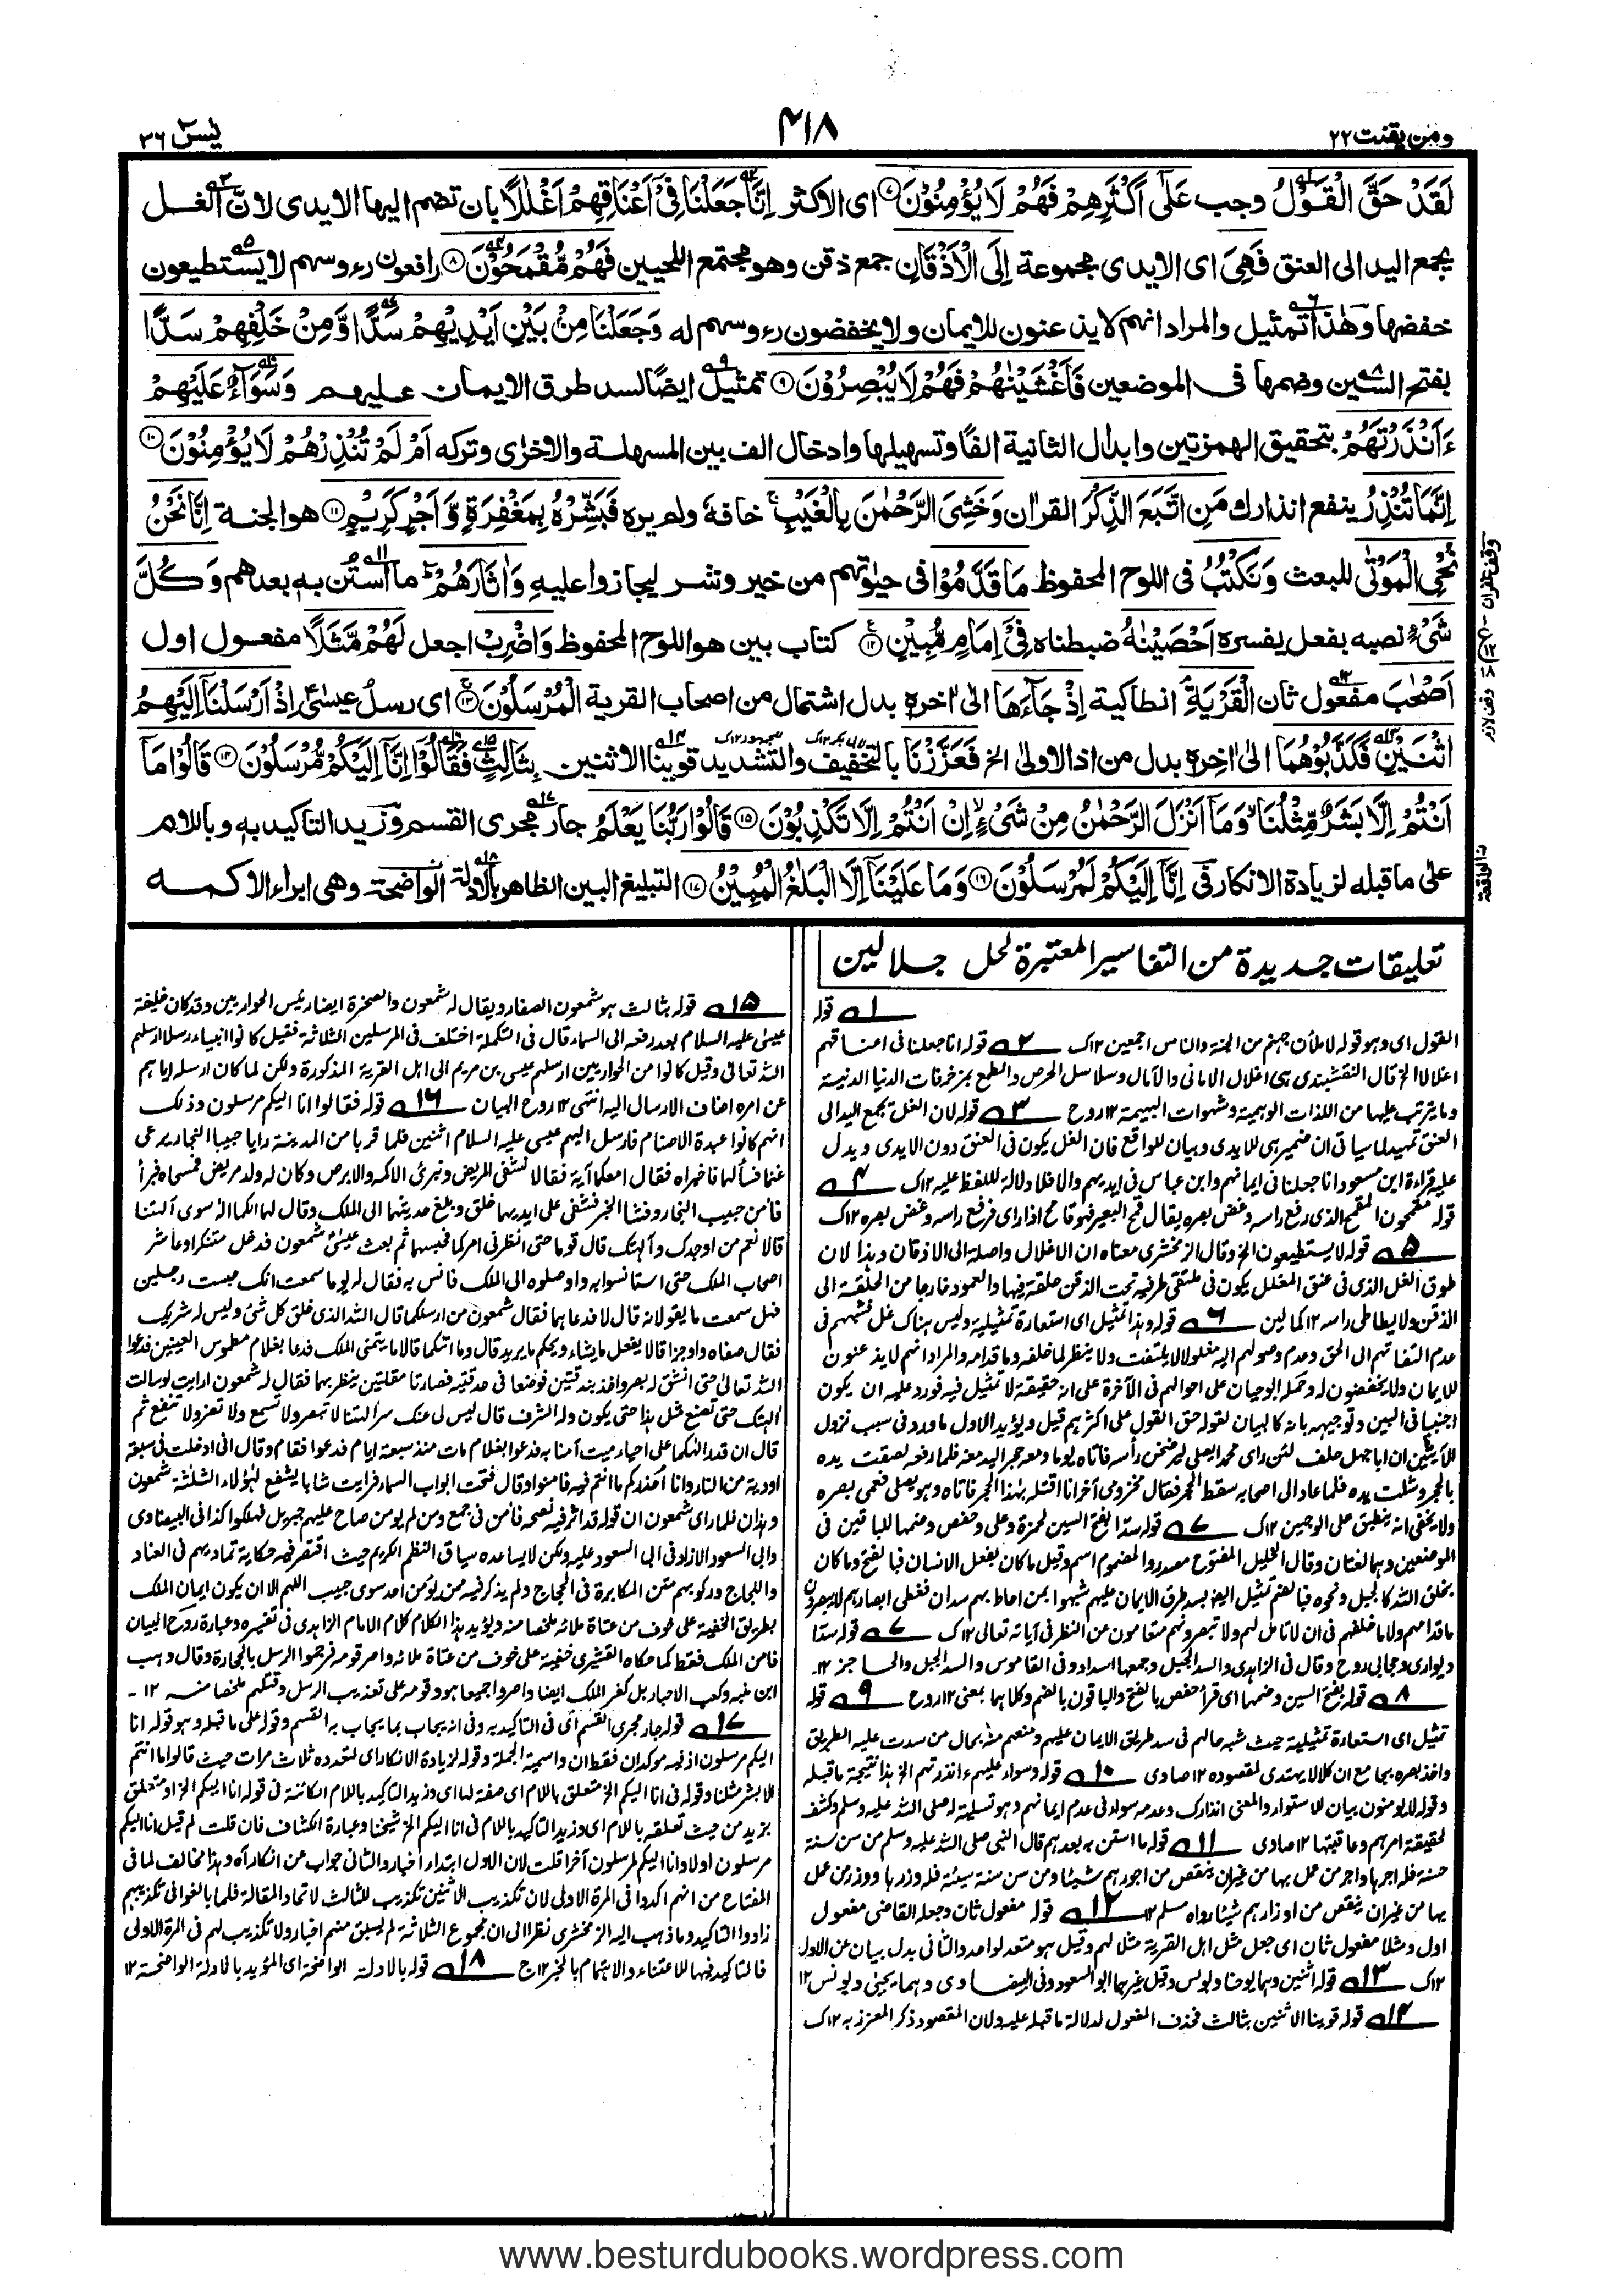 ومن يقنت ٢٢
٤١٨
يٰسٓ ٣٦
لَقَدْ حَقَّ الْقَوْلُ وجب عَلٰٓى اَكْثَرِهِمْ فَهُمْ لَا يُؤْمِنُوْنَ ۝٧ اى الاكثر اِنَّا جَعَلْنَا فِىْٓ اَعْنَاقِهِمْ اَغْلٰلًا بان تضم اليها الايدى لانّ الغل
يجمع اليد الى العنق فَهِىَ اى الايدى مجموعة اِلَى الْاَذْقَانِ جمع ذقن وهو مجتمع اللحيين فَهُمْ مُّقْمَحُوْنَ ۝٨ رافعون رءوسهم لا يستطيعون
خفضها وهٰذا تمثيل والمراد انهم لا يذعنون للايمان ولا يخفضون رءوسهم له وَجَعَلْنَا مِنْۢ بَيْنِ اَيْدِيْهِمْ سَدًّا وَّمِنْ خَلْفِهِمْ سَدًّا
بفتح السّين وضمها فى الموضعين فَاَغْشَيْنٰهُمْ فَهُمْ لَا يُبْصِرُوْنَ ۝٩ تمثيل ايضًا لسد طرق الايمان عليهم وَسَوَآءٌ عَلَيْهِمْ
ءَاَنْذَرْتَهُمْ بتحقيق الهمزتين وابدال الثانية الفًا وتسهيلها وادخال الف بين المسهلة والاخرٰى وتركه اَمْ لَمْ تُنْذِرْهُمْ لَا يُؤْمِنُوْنَ ۝١٠
اِنَّمَا تُنْذِرُ ينفع انذارك مَنِ اتَّبَعَ الذِّكْرَ القراٰن وَخَشِىَ الرَّحْمٰنَ بِالْغَيْبِ خافه ولم يره فَبَشِّرْهُ بِمَغْفِرَةٍ وَّاَجْرٍ كَرِيْمٍ ۝١١ هو الجنة اِنَّا نَحْنُ
نُحْىِ الْمَوْتٰى للبعث وَنَكْتُبُ فى اللوح المحفوظ مَا قَدَّمُوْا فى حيٰوتهم من خير وشر ليجازوا عليه وَاٰثَارَهُمْ ما استُنّ به بعدهم وَكُلَّ
شَىْءٍ نصبه بفعل يفسره اَحْصَيْنٰهُ ضبطناه فِىْٓ اِمَامٍ مُّبِيْنٍ ۝١٢ كتاب بين هو اللوح المحفوظ وَاضْرِبْ اجعل لَهُمْ مَّثَلًا مفعول اول
اَصْحٰبَ مفعول ثان الْقَرْيَةِ انطاكية اِذْ جَآءَهَا الى اٰخره بدل اشتمال من اصحاب القرية الْمُرْسَلُوْنَ ۝١٣ اى رسل عيسٰى اِذْ اَرْسَلْنَآ اِلَيْهِمُ
اثْنَيْنِ فَكَذَّبُوْهُمَا الى اٰخره بدل من اذ الاولٰى الخ فَعَزَّزْنَا بالتخفيف والتشديد قوينا الاثنين بِثَالِثٍ فَقَالُوْٓا اِنَّآ اِلَيْكُمْ مُّرْسَلُوْنَ ۝١٤ قَالُوْا مَآ
اَنْتُمْ اِلَّا بَشَرٌ مِّثْلُنَا وَمَآ اَنْزَلَ الرَّحْمٰنُ مِنْ شَىْءٍ اِنْ اَنْتُمْ اِلَّا تَكْذِبُوْنَ ۝١٥ قَالُوْا رَبُّنَا يَعْلَمُ جار مجرى القسم وزيد التاكيد به وباللام
علٰى ما قبله لزيادة الانكار فى اِنَّآ اِلَيْكُمْ لَمُرْسَلُوْنَ ۝١٦ وَمَا عَلَيْنَآ اِلَّا الْبَلٰغُ الْمُبِيْنُ ۝١٧ التبليغ البين الظاهر بالادلة الواضحة وهى ابراء الاكمه
تعليقات جديدة من التفاسير المعتبرة لحل جلالين
١ قوله
القول اى وهو قوله لاملأن جهنم من الجنة والناس اجمعين ١٢ك ٢ قوله انا جعلنا فى اعناقهم
اغلالا الخ قال النقشبندى هى اغلال الامانى والآمال وسلاسل الحرص والطمع بمزخرفات الدنيا الدنيئة
وما يترتب عليها من اللذات الوهمية وشهوات البهيمة ١٢ روح ٣ قوله لان الغل يجمع اليد الى
العنق تمهيد لما سياتى ان ضمير هى للايدى وبيان للواقع فان الغل يكون فى العنق دون الايدى ويدل
عليه قراءة ابن مسعود انا جعلنا فى ايمانهم وابن عباس فى ايديهم والا فلا دلالة للفظ عليه ١٢ك ٤
قوله مقمحون المقمح الذى رفع راسه وغض بصره يقال قمح البعير فهو قامح اذا رأى فرفع راسه وغض بصره ١٢ك
٥ قوله لا يستطيعون الخ وقال الزمخشرى معناه ان الاغلال واصلة الى الاذقان وهذا لان
طوق الغل الذى فى عنق المغلل يكون فى ملتقى طرفيه تحت الذقن حلقة فيها والعمود خارجا من الحلقة الى
الذقن ولا يطاطى راسه ١٢ كمالين ٦ قوله وهذا تمثيل اى استعارة تمثيلية وليس هناك غل فشبههم فى
عدم التفاتهم الى الحق وعدم وصولهم اليه
للايمان ولا يخفضون له وحمله ابو حيان على احوالهم فى الآخرة على انه حقيقة لا تمثيل فيه فورد عليه ان يكون
اجنبيا فى البين وتوجيهه بانه كالبيان لقوله حق القول على اكثرهم قيل ويؤيد الاول ما ورد فى سبب نزول
بالحجر وشلت يده فلما عاد الى اصحابه سقط الحجر فقال مخزومى آخر انا اقتله بهذا الحجر فاتاه وهو يصلى فعمى بصره
ولا يخفى انه ينطبق على الوجهين ١٢ك ٧ قوله سدا بفتح السين لحمزة وعلى وحفص وضمها للباقين فى
الموضعين وهما لغتان وقال الخليل المفتوح مصدر والمضموم اسم وقيل ما كان بفعل الانسان فبالفتح وما كان
٨ قوله بفتح السين وضمها اى قرأ حفص بالفتح والباقون بالضم وكلاهما بمعنى ١٢ روح ٩ قوله
تمثيل اى استعارة تمثيلية حيث شبه حالهم فى سد طريق الايمان عليهم ومنعهم منه بحال من سدت عليه الطريق
واخذ بصره بجامع ان كلا لا يهتدى لمقصوده ١٢ صاوى ١٠ قوله وسواء عليهم ءانذرتهم الخ هذا نتيجة ما قبله
وقوله لا يؤمنون بيان للاستواء والمعنى انذارك وعدمه سواء فى عدم ايمانهم وهو تسلية له صلى الله عليه وسلم وكشف
لحقيقة امرهم وعاقبتها ١٢ صاوى ١١ قوله ما استن به بعدهم قال النبى صلى الله عليه وسلم من سن سنة
حسنة فله اجرها واجر من عمل بها من غير ان ينقص من اجورهم شيئا ومن سن سنة سيئة فله وزرها ووزر من عمل
بها من غير ان ينقص من اوزارهم شيئا رواه مسلم ١٢ ١٢ قوله مفعول ثان وجعله القاضى مفعول
اول ومثلا مفعول ثان اى جعل مثل اهل القرية مثلا لهم وقيل هو متعد لواحد والثانى بدل بيان عن الاول
١٢ك ١٣ قوله اثنين وهما يوحنا وبولس وقيل غيرهما ابو السعود وفى البيضاوى وهما يحيى ويونس ١٢
١٤ قوله قوينا الاثنين بثالث فحذف المفعول لدلالة ما قبله عليه ولان المقصود ذكر المعزز به ١٢ك
١٥ قوله بثالث هو شمعون الصفار ويقال له شمعون والصخرة ايضا رئيس الحواريين وقد كان خليفة
عيسى عليه السلام بعد رفعه الى السماء قال فى التكملة اختلف فى المرسلين الثلاثة فقيل كانوا انبياء رسلا ارسلهم
الله تعالى وقيل كانوا من الحواريين ارسلهم عيسى بن مريم الى اهل القرية المذكورة ولكن لما كان ارساله اياهم
عن امره اضاف الارسال اليه انتهى ١٢ روح البيان ١٦ قوله فقالوا انا اليكم مرسلون وذلك
انهم كانوا عبدة الاصنام فارسل اليهم عيسى عليه السلام اثنين فلما قربا من المدينة رايا حبيبا النجار يرعى
غنما فسألهما فاخبراه فقال امعكما آية فقالا نشفى المريض ونبرئ الاكمه والابرص وكان له ولد مريض فمسحاه فبرأ
فآمن حبيب النجار وفشا الخبر فشفى على ايديهما خلق وبلغ حديثهما الى الملك وقال لهما الكما اله سوى آلهتنا
قالا نعم من اوجدك وآلهتك قال قوما حتى انظر فى امركما فحبسهما ثم بعث عيسى شمعون فدخل متنكرا وعاشر
اصحاب الملك حتى استانسوا به واوصلوه الى الملك فانس به فقال له يوما سمعت انك حبست رجلين
فهل سمعت ما يقولانه قال لا فدعاهما فقال شمعون من ارسلكما قال الله الذى خلق كل شئ وليس له شريك
فقال صفاه واوجزا قالا يفعل ما يشاء ويحكم ما يريد قال وما آيتكما قالا ما يتمنى الملك فدعا بغلام مطموس العينين فدعوا
الله تعالى حتى انشق له بصر واخذ بندقتين فوضعا فى حدقتيه فصارتا مقلتين ينظر بهما فقال له شمعون ارايت لو سالت
آلهتك حتى تصنع مثل هذا حتى يكون لك وله الشرف قال ليس لى عنك سر آلهتنا لا تبصر ولا تسمع ولا تضر ولا تنفع ثم
قال ان قدر الهكما على احياء ميت آمنا به فدعوا بغلام مات منذ سبعة ايام فدعوا فقام وقال انى ادخلت فى سبعة
اودية من النار وانا احذركم ما انتم فيه فآمنوا وقال فتحت ابواب السماء فرايت شابا يشفع لهؤلاء الثلثة شمعون
وهذان فلما رأى شمعون ان قوله قد اثر فيه نصحه فآمن فى جمع ومن لم يؤمن صاح عليهم جبريل فهلكوا كذا فى البيضاوى
بطريق الخفية على خوف من عتاة ملائه ملخصا منه ويؤيد هذا الكلام كلام الامام الزاهدى فى تفسيره وعبارة روح البيان
فآمن الملك فقط كما حكاه القشيرى خفية على خوف من عتاة ملائه واصر قومه فرجموا الرسل بالحجارة وقال وهب
ابن منبه وكعب الاحبار بل كفر الملك ايضا واصروا جميعا هو وقومه على تعذيب الرسل وقتلهم ملخصا منه ١٢
١٧ قوله جار مجرى القسم اى فى التاكيد به وفى انه يجاب بما يجاب به القسم وقوله على ما قبله وهو قوله انا
اليكم مرسلون اذ فيه مؤكدان فقط ان واسمية الجملة وقوله لزيادة الانكار اى لتعدده ثلاث مرات حيث قالوا ما انتم
الا بشر مثلنا وقوله فى انا اليكم الخ متعلق باللام اى صفة لها اى وزيد التاكيد باللام الكائنة فى قوله انا اليكم الخ او متعلق
بزيد من حيث تعلقه باللام اى وزيد التاكيد باللام فى انا اليكم الخ شيخنا وعبارة الكشاف فان قلت لم قيل انا اليكم
مرسلون اولا وانا اليكم لمرسلون آخرا قلت لان الاول ابتداء اخبار والثانى جواب عن انكار اه وهذا مخالف لما فى
المفتاح من انهم اكدوا فى المرة الاولى لان تكذيب الاثنين تكذيب للثالث لاتحاد المقالة فلما بالغوا فى تكذيبهم
زادوا التاكيد وما ذهب اليه الزمخشرى نظرا الى ان مجموع الثلاثة لم يسبق منهم اخبار ولا تكذيب لهم فى المرة الاولى
فالتاكيد فيها للاعتناء والاهتمام بالخبر ١٢ ج ١٨ قوله بالادلة الواضحة اى المؤيد بالادلة الواضحة ١٢
www.besturdubooks.wordpress.com